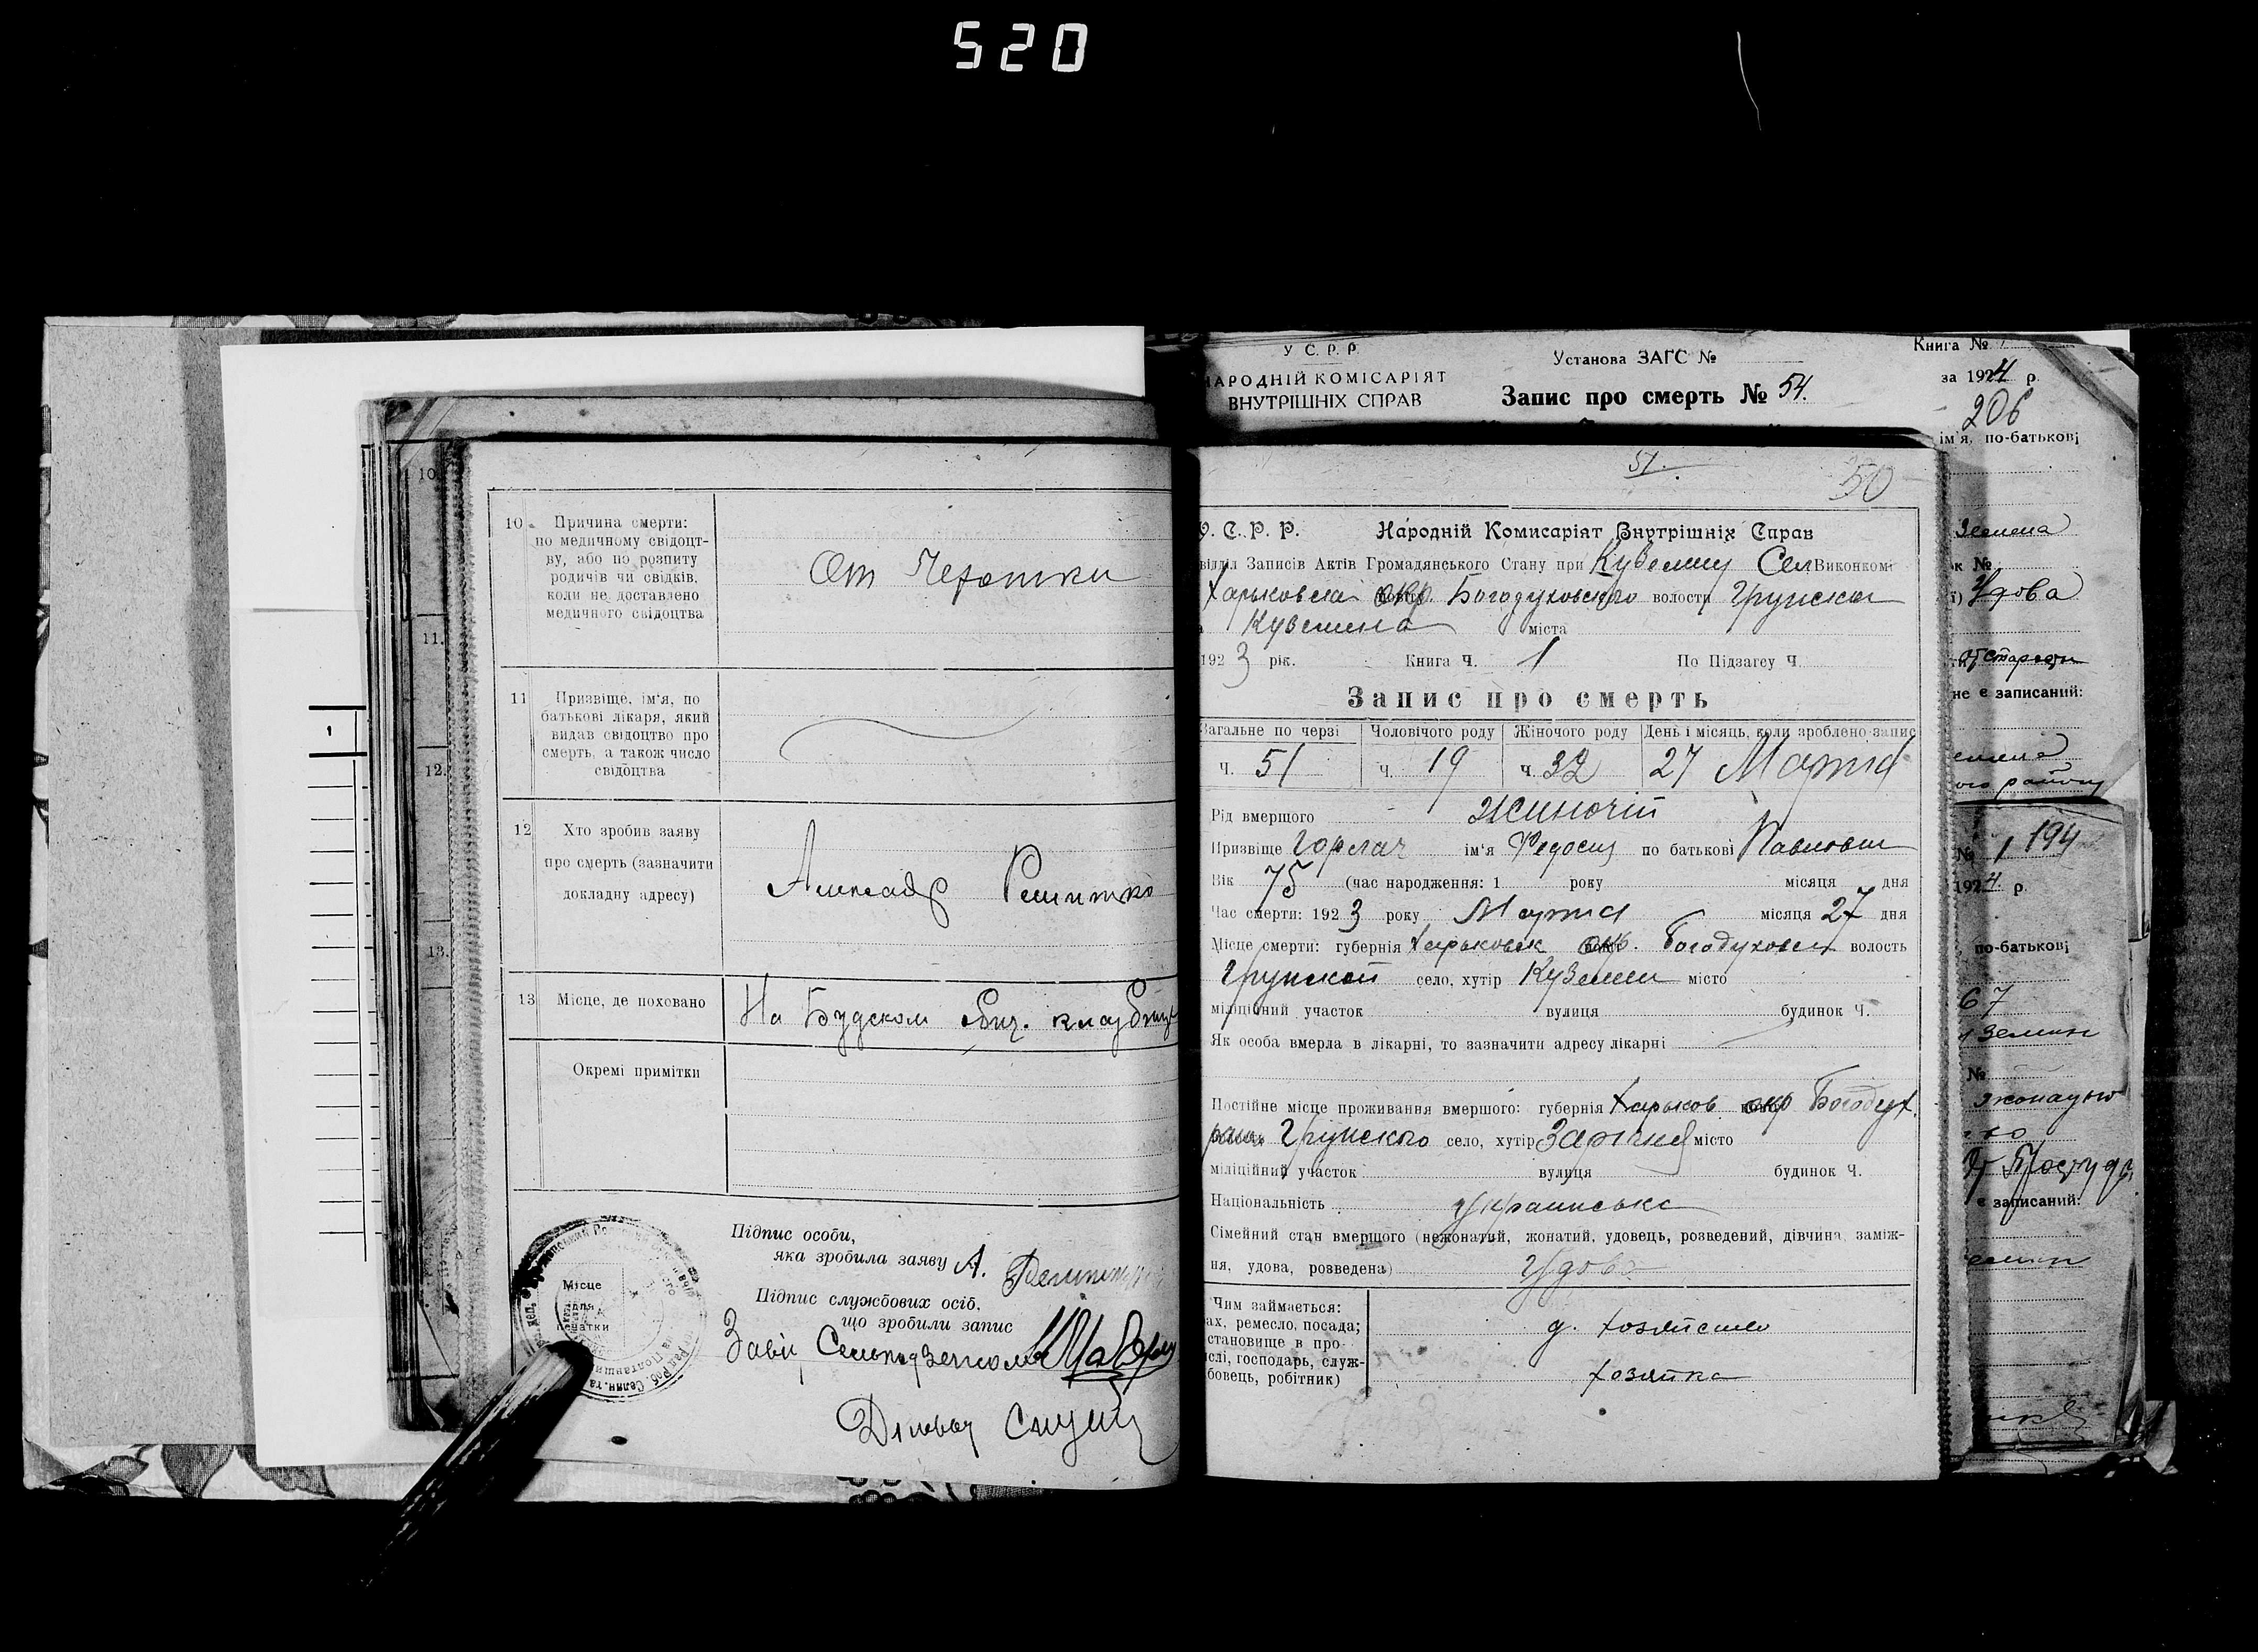 520
10. Причина смерти:
по медичному свідоцт-
ву, або по розпиту
родичів чи свідків,
коли не доставлено
медичного свідоцтва
От Чехотки
11 Призвіще, ім'я, по
батькові лікаря, який
видав свідоцтво про
смерть, а також число
свідоцтва
12 Хто зробив заяву
про смерть (зазначити
докладну адресу)
13 Місце, де поховано
На Будском общ. кладбище
Окремі примітки
Підпис особи,
яка зробила заяву А.
Підпис службових осіб,
що зробили запис
Місце
для
печатки
10
11.
12.
13.
У С. Р. Р
НАРОДНІЙ КОМІСАРІЯТ
ВНУТРІШНІХ СПРАВ
Установа ЗАГС №
Запис про смерть № 54.
Книга №
за 1924 р.
206
ім'я, по-батькові
51.
50
У. С. Р. Р. Народній Комисаріят Внутрішніх Справ
відділ Записів Актів Громадянського Стану при Сел Виконкомі
Харьковская окр. Богодуховского волости Грунской
Куземина міста
1923 рік. Книга Ч. 1 По Підзагсу Ч.
Запис про смерть
Загальне по черзі Чоловічого роду Жіночого роду День і місяць, коли зроблено запис
Ч. 51 Ч. 19 Ч. 32 27 Марта
Рід вмершого жиночій
Призвіще Горлач ім'я Федосия по батькові Павловна
Вік 75 (час народження: 1 року місяця дня
Час смерти: 1923 року Марта місяця 27 дня
Місце смерти: губернія Харьковск окр. Богодуховск волость
Грунской село, хутір Куземин місто
міліційний участок вулиця будинок Ч.
Як особа вмерла в лікарні, то зазначити адресу лікарні
Постійне місце проживання вмершого: губернія Харьков окр Богодух.
Грунского село, хутір Заричня місто
міліційний участок вулиця будинок Ч.
Національність украинська
Сімейний стан вмершого (нежонатий, жонатий, удовець, розведений, дівчина, заміж-
ня, удова, розведена) Удова
Чим займається:
ах, ремесло, посада;
становище в про-
слі, господарь, служ-
бовець, робітник)
д. хозяйство
хозяйка
Удова
от старости
не є записаний:
№ 1 194
1924 р.
по-батькові
67
№
є записаний: